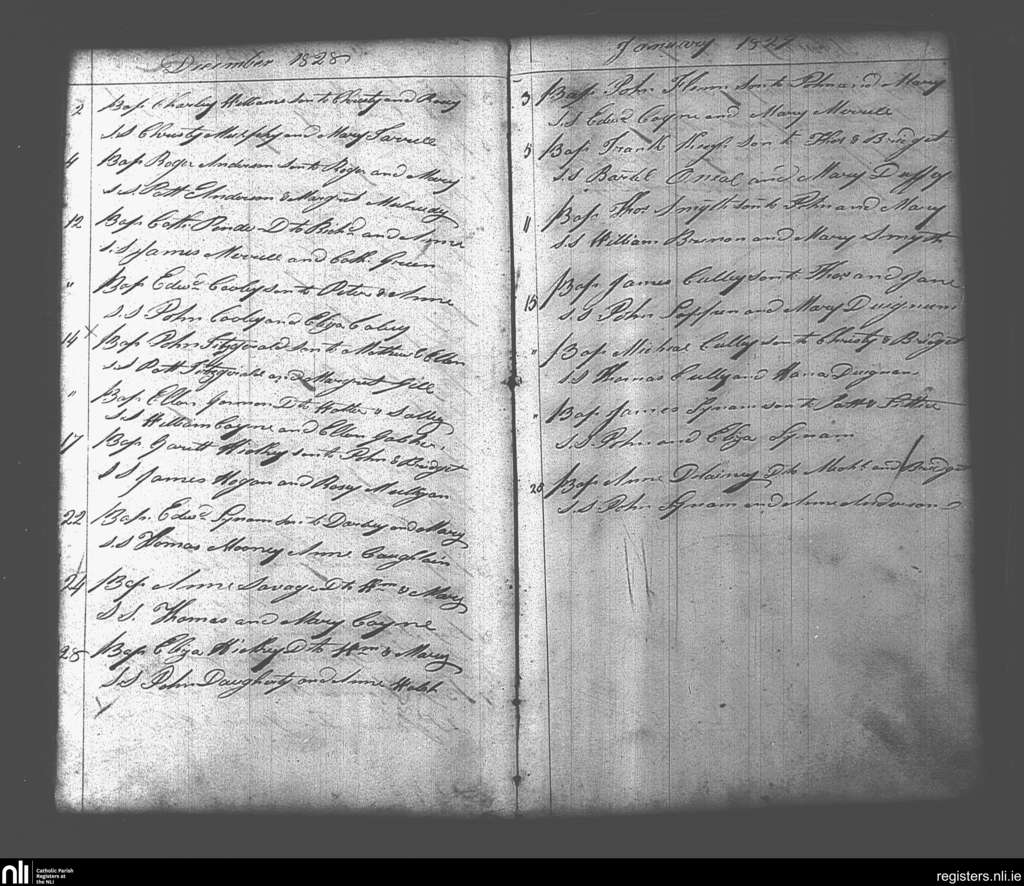 December 1828
2 Bap. Charley Williams son to Christy and Rosy
S.S Christy Murphy and Mary Farrell
4 Bap. Roger Anderson son to Roger and Mary
S.S Patt Anderson & Margret
12 Bap. Cath. D. to Rich.d and Anne
S.S James Merrell and Cath. Green
" Bap. Edw.d Cooly son to Peter & Anne
S.S John Cooly and Eliza
14 Bap. John Fitzgerald son to Mathew & Ellen
S.S Patt Fitzgerald and Margret Gill
" Bap. Ellen D. to & Sally
S.S William Coyne and Ellen
17 Bap. Garett Hickey son to John & Bridget
S.S James Hogan and Rosy Mulligan
22 Bap. Edw.d Lynam son to Darby and Mary
S.S Thomas Mooney Anne Coughlain
24 Bap. Anne Savage D. to Wm & Mary
S.S. Thomas and Mary Coyne
28 Bap. Eliza Hickey D. to Wm & Mary
S.S John Daugherty and Anne Walsh
January 1829
3 Bap. John Flinn son to John and Mary
S.S Edw.d Coyne and Mary Merrell
5 Bap. Frank Keogh son to Thos & Bridget
S.S Bartel Oneal and Mary Duffey
11 Bap. Thos Smyth son to John and Mary
S.S William Brenon and Mary Smyth
15 Bap. James Culley son to Thos and Jane
S.S John and Mary Duignum
" Bap. Micheal Culley son to Christy & Bridget
S.S Thomas Cully and Hana Duignan
" Bap. James Lynam son to Patt &
S.S. John and Eliza Lynam
25 Bap. Anne Delainey D. to Michl and Bridget
S.S John Lynam and Anne Anderson
nli Catholic Parish
Registers at
the NLI
registers.nli.ie